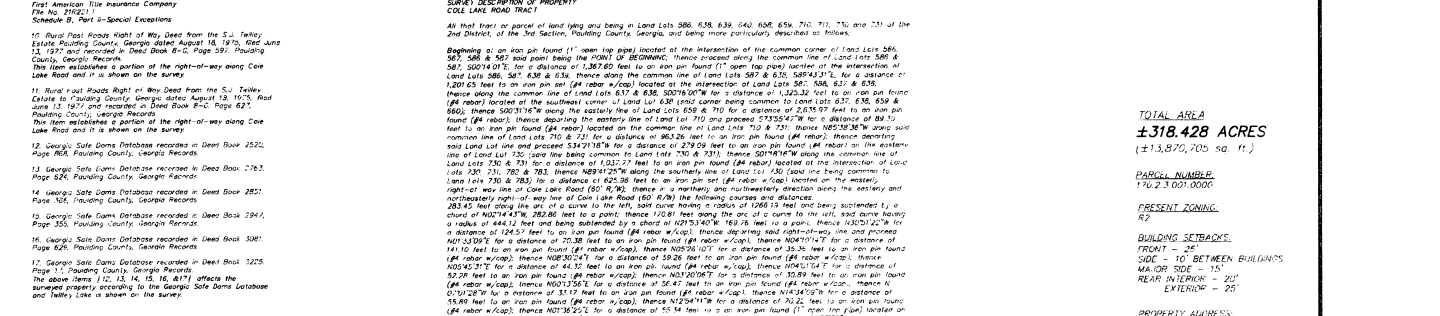 First American Title Insurance Company
File No.
Schedule B, Part II—Special Exceptions
10. Rural Post Roads Right of Way Deed from the S.J. Twilley
Estate Paulding County, Georgia dated August 18, 1975, filed June
13, 1977 and recorded in Deed Book 8-G, Page 597, Paulding
County, Georgia Records.
This item establishes a portion of the right-of-way along Cole
Lake Road and it is shown on the survey.
11. Rural Post Roads Right of Way Deed from the S.J. Twilley
Estate to Paulding County, Georgia dated August 19, 1975, filed
June 13, 1977 and recorded in Deed Book 8-G, Page
Paulding County, Georgia Records
This item establishes a portion of the right-of-way along Cole
Lake Road and it is shown on the survey.
12. Georgia Safe Dams Database recorded in Deed Book 2520,
Page 868, Paulding County, Georgia Records.
13. Georgia Safe Dams Database recorded in Deed Book 2763,
Page 624, Paulding County, Georgia Records.
14. Georgia Safe Dams Database recorded in Deed Book 2851,
Page 366, Paulding County, Georgia Records.
15. Georgia Safe Dams Database recorded in Deed Book 2947,
Page 355, Paulding County, Georgia Records.
16. Georgia Safe Dams Database recorded in Deed Book 3081,
Page 629, Paulding County, Georgia Records.
17. Georgia Safe Dams Database recorded in Deed Book 3225,
Page Paulding County, Georgia Records.
The above items (12, 13, 14, 15, 16, &17) affects the
surveyed property according to the Georgia Safe Dams Database
and Twilley Lake is shown on the survey.
SURVEY DESCRIPTION OF PROPERTY
COLE LAKE ROAD TRACT
All that tract or parcel of land lying and being in Land Lots 586, 638, 639, 640, 658, 659, 710, 711, 730 and 731 of the
2nd District, of the 3rd Section, Paulding County, Georgia, and being more particularly described as follows;
Beginning at an iron pin found (1" open top pipe) located at the intersection of the common corner of Land Lots 566,
567, 586 & 587 said point being the POINT OF BEGINNING; thence proceed along the common line of Land Lots 586 &
587, S00°14'01"E, for a distance of 1,367.60 feet to an iron pin found (1" open top pipe) located at the intersection of
Land Lots 586, 587, 638 & 639, thence along the common line of Land Lots 587 & 638, S89°43'31"E, for a distance of
1,201.65 feet to an iron pin set (#4 rebar w/cap) located at the intersection of Land Lots 587, 588, 637 & 638,
thence along the common line of Land Lots 637 & 638, S00°16'00"W for a distance of 1,325.32 feet to an iron pin found
(#4 rebar) located at the southeast corner of Land Lot 638 (said corner being common to Land Lots 637, 638, 659 &
660); thence S00°31'16"W along the easterly line of Land Lots 659 & 710 for a distance of 2,635.97 feet to an iron pin
found (#4 rebar); thence departing the easterly line of Land Lot 710 and proceed S73°55'47"W for a distance of 89.30
feet to an iron pin found (#4 rebar) located on the common line of Land Lots 710 & 731; thence N85°38'36"W along said
common line of Land Lots 710 & 731 for a distance of 963.26 feet to an iron pin found (#4 rebar); thence departing
said Land Lot line and proceed S34°21'18"W for a distance of 279.09 feet to an iron pin found (#4 rebar) on the easterly
line of Land Lot 730 (said line being common to Land Lots 730 & 731); thence S01°18'16"W along the common line of
Land Lots 730 & 731 for a distance of 1,037.77 feet to an iron pin found (#4 rebar) located at the intersection of Land
Lots 730, 731, 782 & 783; thence N89°41'25"W along the southerly line of Land Lot 730 (said line being common to
Land Lots 730 & 783) for a distance of 625.96 feet to an iron pin set (#4 rebar w/cap) located on the easterly
right-of way line or Cole Lake Road (60' R/W); thence in a northerly and northwesterly direction along the easterly and
northeasterly right-of-way line of Cole Lake Road (60' R/W) the following courses and distances:
283.45 feet along the arc of a curve to the left, said curve having a radius of 1266.19 feet and being subtended by a
chord of N02°14'43"W, 282.86 feet to a point; thence 170.81 feet along the arc of a curve to the left, said curve having
a radius of 444.12 feet and being subtended by a chord of N21°53'40"W 169.76 feet to a point, thence N30°51'22"W for
a distance of 124.57 feet to an iron pin found (#4 rebar w/cap); thence departing said right-of-way line and proceed
N01°33'09"E for a distance of 70.38 feet to an iron pin found (#4 rebar w/cap), thence N04°10'14"E for a distance of
141.10 feet to an iron found (#4 rebar w/cap); thence N05°26'10"E for a distance of 35.36 feet to an iron pin found
(#4 rebar w/cap), thence N08°30'24"E for a distance of 59.26 feet to an iron pin found (#4 rebar w/cap); thence
N05°45'31"E for a distance of 44.32 feet to an iron pin found (#4 rebar w/cap), thence N04°01'04"E for a distance of
52.28 feet to an iron pin found (#4 rebar w/cap); thence N03°20'06"E for a distance of 30.89 feet to an iron pin found
(#4 rebar w/cap); thence N00°13'56"E for a distance of 56.47 feet to an iron pin found (#4 rebar w/cap); thence N
07°01'28"W for a distance of 33.17 feet to an iron pin found (#4 rebar w/cap); thence N14°34'09"W for a distance of
55.89 feet to an iron pin found (#4 rebar w/cap); thence N12°54'11"W for a distance of 70.22 feet to an iron pin found
(#4 rebar w/cap); thence N01°36'25"E for a distance of 55.34 feet to a an iron pin found (1" open top pipe) located on
TOTAL AREA
±318.428 ACRES
(±13,870,705 sq. ft.)
PARCEL NUMBER:
170.2.3.001.0000
PRESENT ZONING:
R2
BUILDING SETBACKS:
FRONT – 25'
SIDE – 10' BETWEEN BUILDINGS
MAJOR SIDE – 15'
REAR INTERIOR – 20'
EXTERIOR – 25'
PROPERTY ADDRESS: